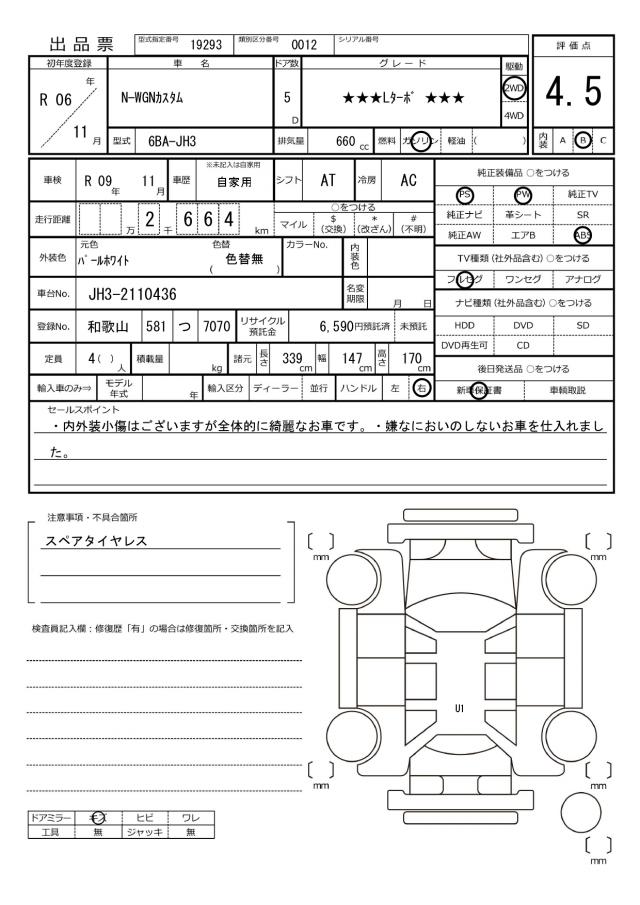 出品票 型式指定番号 19293 類別区分番号 0012 シリアル番号
評価点
4.5
初年度登録 車名 ドア数 グレード 駆動
R 06 年 11 月 N-WGNカスタム 5 D ★★★Lターボ ★★★ 2WD
4WD
型式 6BA-JH3 排気量 660 cc 燃料 ガソリン 軽油 ( )
内装 A B C
車検 R 09 年 11 月 車歴 ※未記入は自家用 自家用 シフト AT 冷房 AC
走行距離 万 2 千 6 6 4 km
○をつける
マイル $ (交換) * (改ざん) # (不明)
外装色 元色 パールホワイト 色替 ( 色替無 ) カラーNo. 内装色
車台No. JH3-2110436 名変期限 月 日
登録No. 和歌山 581 つ 7070 リサイクル預託金 6,590円預託済 未預託
定員 4 ( ) 人 積載量 kg 諸元 長さ 339 cm 幅 147 cm 高さ 170 cm
輸入車のみ⇒ モデル年式 年 輸入区分 ディーラー 並行 ハンドル 左 右
純正装備品 ○をつける
PS PW 純正TV
純正ナビ 革シート SR
純正AW エアB ABS
TV種類 (社外品含む) ○をつける
フルセグ ワンセグ アナログ
ナビ種類 (社外品含む) ○をつける
HDD DVD SD
DVD再生可 CD
後日発送品 ○をつける
新車保証書 車輌取説
セールスポイント
・内外装小傷はございますが全体的に綺麗なお車です。・嫌なにおいのしないお車を仕入れまし
た。
注意事項・不具合箇所
スペアタイヤレス
検査員記入欄：修復歴「有」の場合は修復箇所・交換箇所を記入
〔 〕 mm
〔 〕 mm
U1
〔 〕 mm
〔 〕 mm
〔 〕 mm
ドアミラー キズ ヒビ ワレ
工具 無 ジャッキ 無